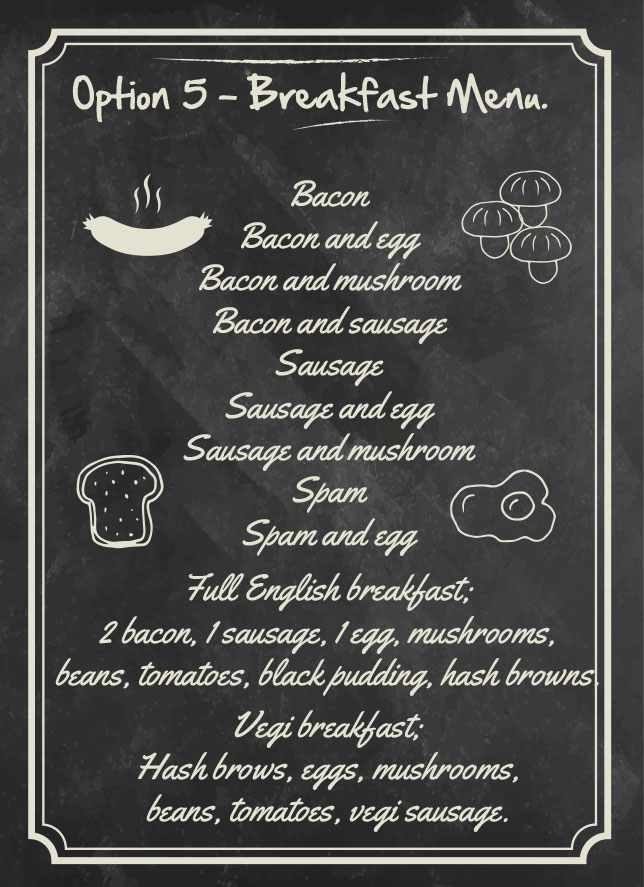 Option 5 - Breakfast Menu.
Bacon
Bacon and egg
Bacon and mushroom
Bacon and sausage
Sausage
Sausage and egg
Sausage and mushroom
Spam
Spam and egg
Full English breakfast;
2 bacon, 1 sausage, 1 egg, mushrooms,
beans, tomatoes, black pudding, hash browns.
Vegi breakfast;
Hash brows, eggs, mushrooms,
beans, tomatoes, vegi sausage.